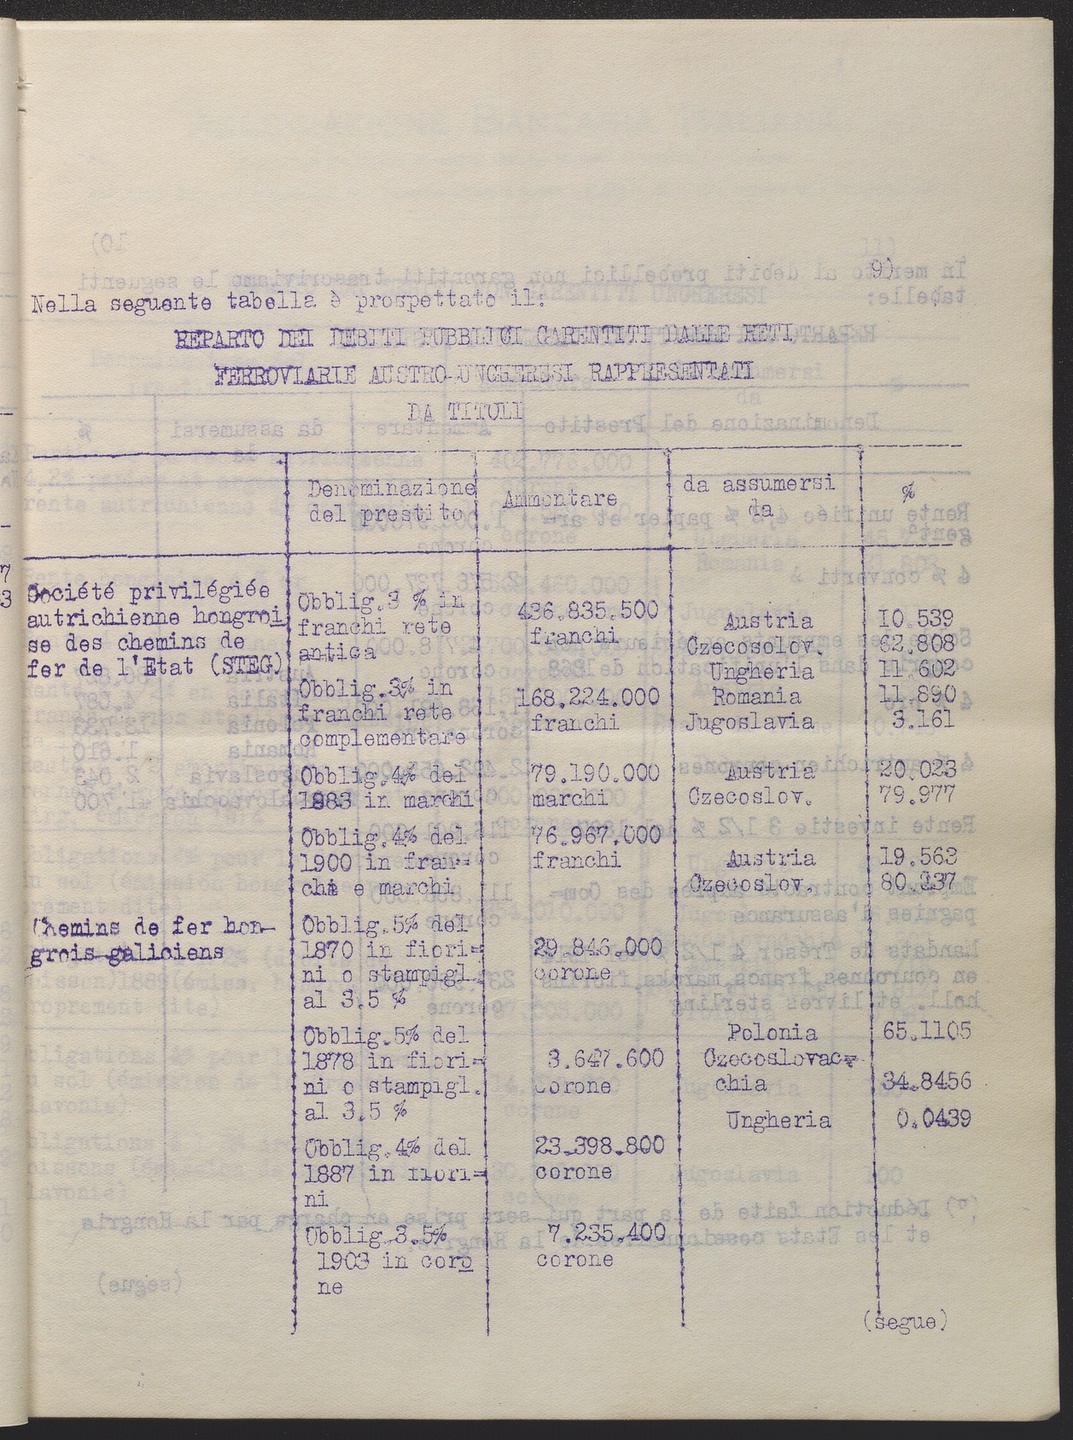 9)
Nella seguente tabella è prospettato il:
REPARTO DEI DEBITI PUBBLICI GARENTITI DALLE RETI
FERROVIARIE AUSTRO-UNGHERESI RAPPRESENTATI
DA TITOLI
Denominazione del prestito
Ammontare
da assumersi da
%
Société privilégiée
autrichienne hongroi
se des chemins de
fer de l'Etat (STEG)
Obblig.3 % in
franchi rete
antica
436.835.500
franchi
Obblig.3% in
franchi rete
complementare
168.224.000
franchi
Austria 10.539
Czecosolov. 62.808
Ungheria 11.602
Romania 11.890
Jugoslavia 3.161
Obblig.4% del
1883 in marchi
79.190.000
marchi
Austria 20.023
Czecoslov. 79.977
Obblig.4% del
1900 in fran=
chi e marchi
76.967.000
franchi
Austria 19.563
Czecoslov. 80.237
Chemins de fer hon-
grois-galiciens
Obblig.5% del
1870 in fiori=
ni o stampigl.
al 3.5 %
29.846.000
corone
Obblig.5% del
1878 in fiori=
ni o stampigl.
al 3.5 %
3.647.600
corone
Polonia 65.1105
Czecoslovac=
chia 34.8456
Ungheria 0.0439
Obblig.4% del
1887 in fiori=
ni
23.398.800
corone
Obblig.3.5%
1903 in coro
ne
7.235.400
corone
(segue)